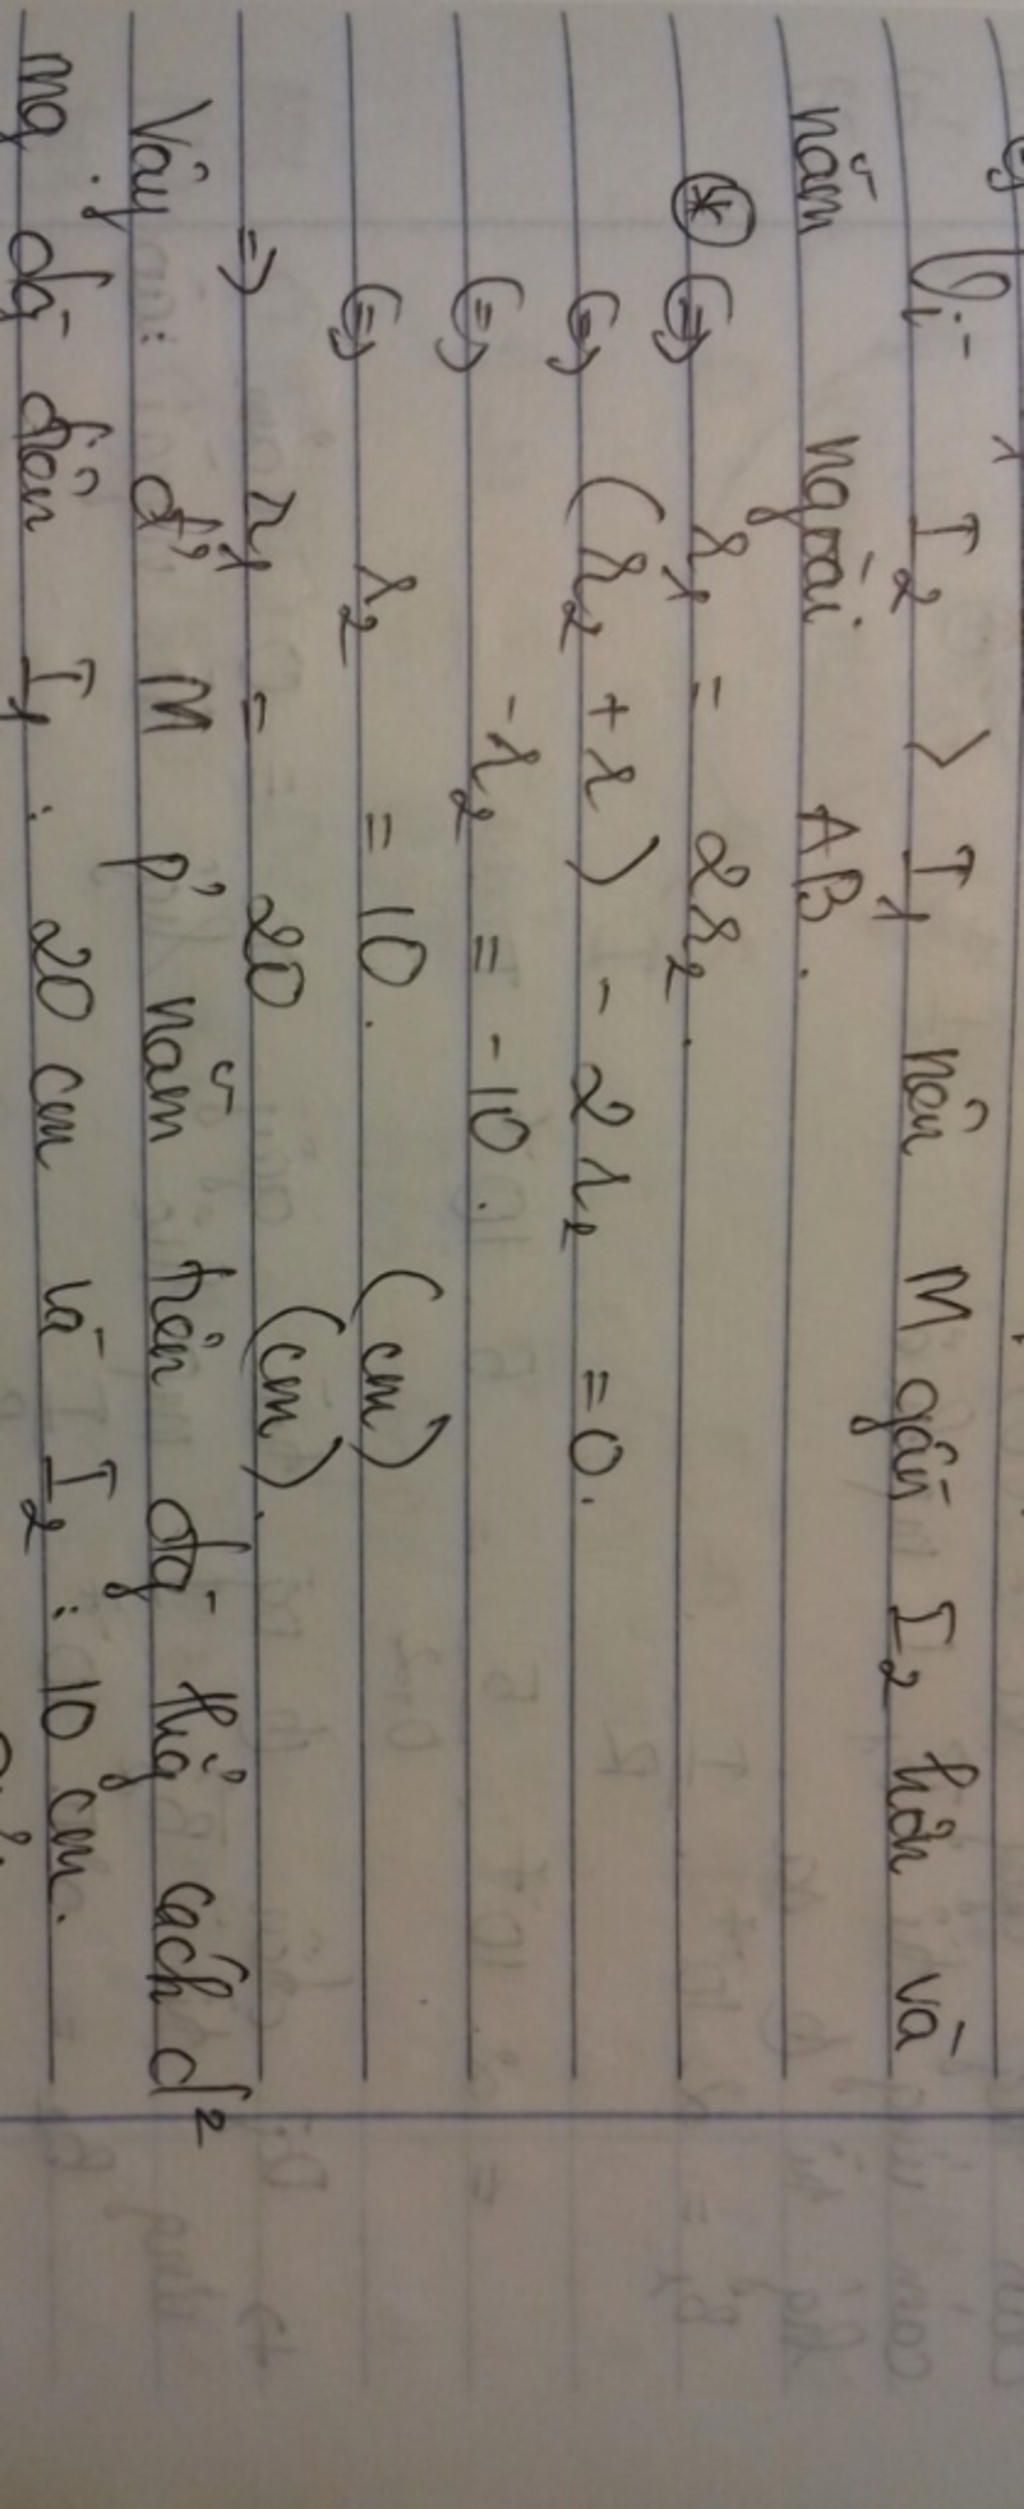 Vì I₂ > I₁ nên M gần I₂ hơn và
nằm ngoài AB.
⊛ ⇔ r₁ = 2r₂.
⇔ (r₂ + r) - 2r₂ = 0.
⇔ -r₂ = -10.
⇔ r₂ = 10. (cm)
⇒ r₁ = 20 (cm).
Vậy đ' M p' nằm trên đg` thẳg cách d²
mg dg` điện I₁ : 20 cm và I₂ : 10 cm.